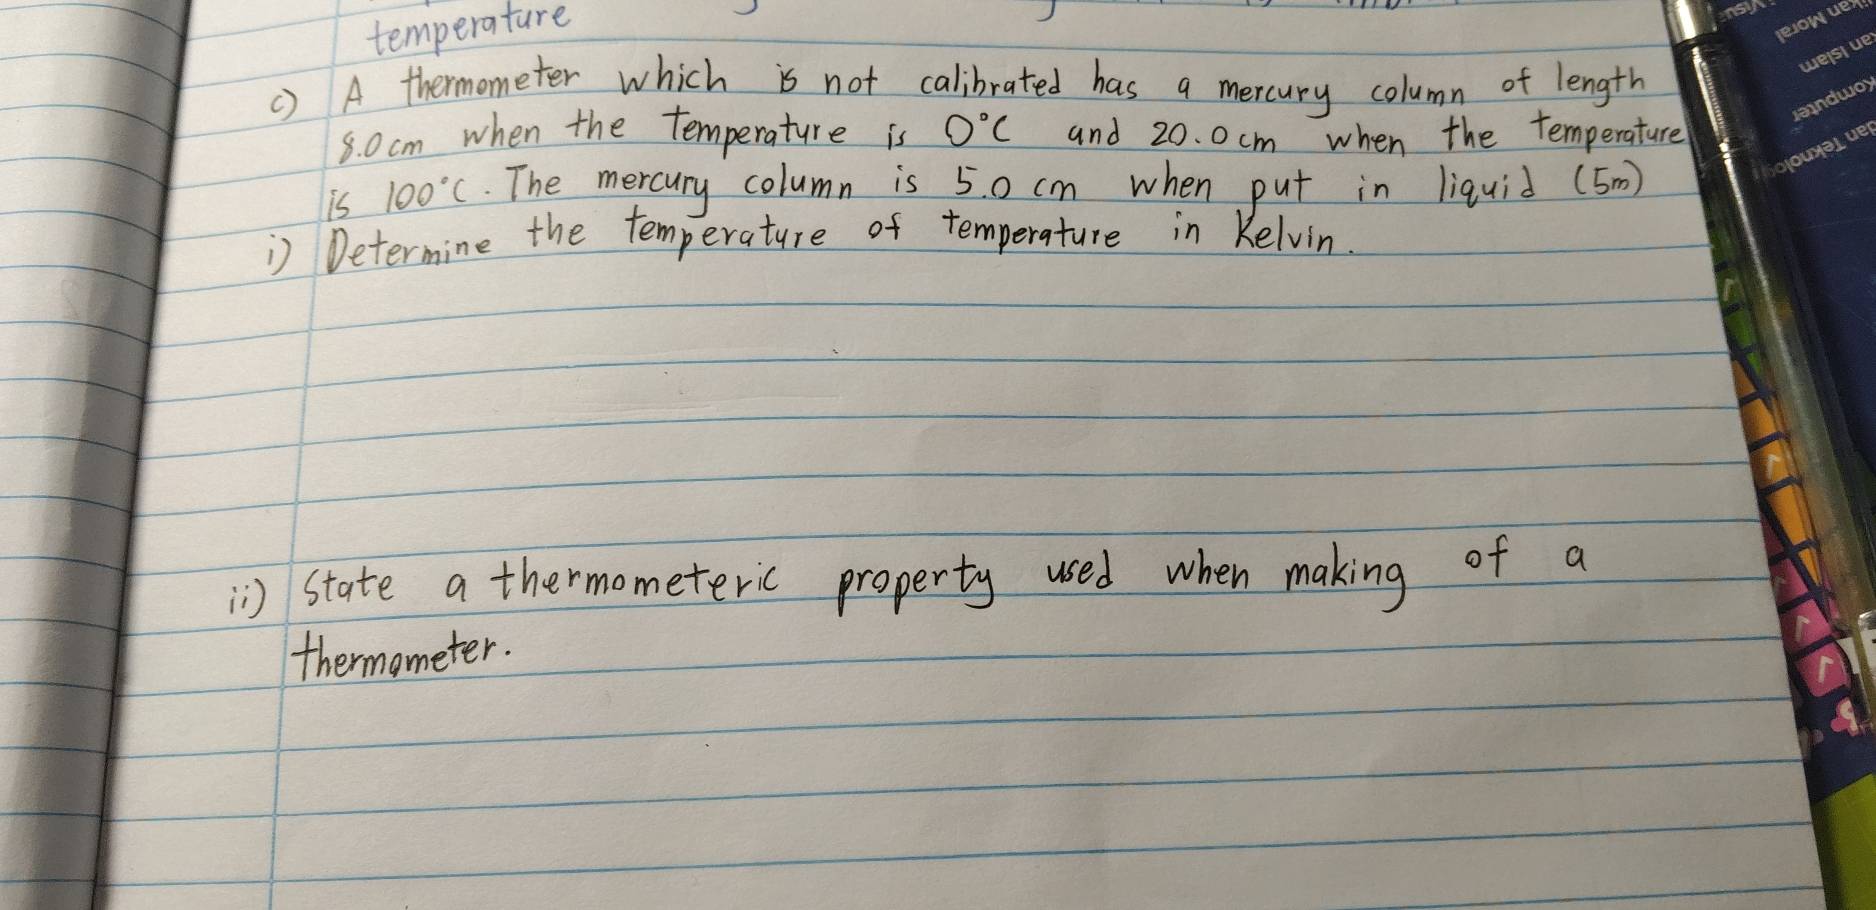 temperature
c) A thermometer which is not calibrated has a mercury column of length
8.0 cm when the temperature is 0°C and 20.0 cm when the temperature
is 100°C. The mercury column is 5.0 cm when put in liquid (5m)
i) Determine the temperature of temperature in Kelvin.
ii) State a thermometeric property used when making of a
thermometer.
Moral
an Islam
Komputer